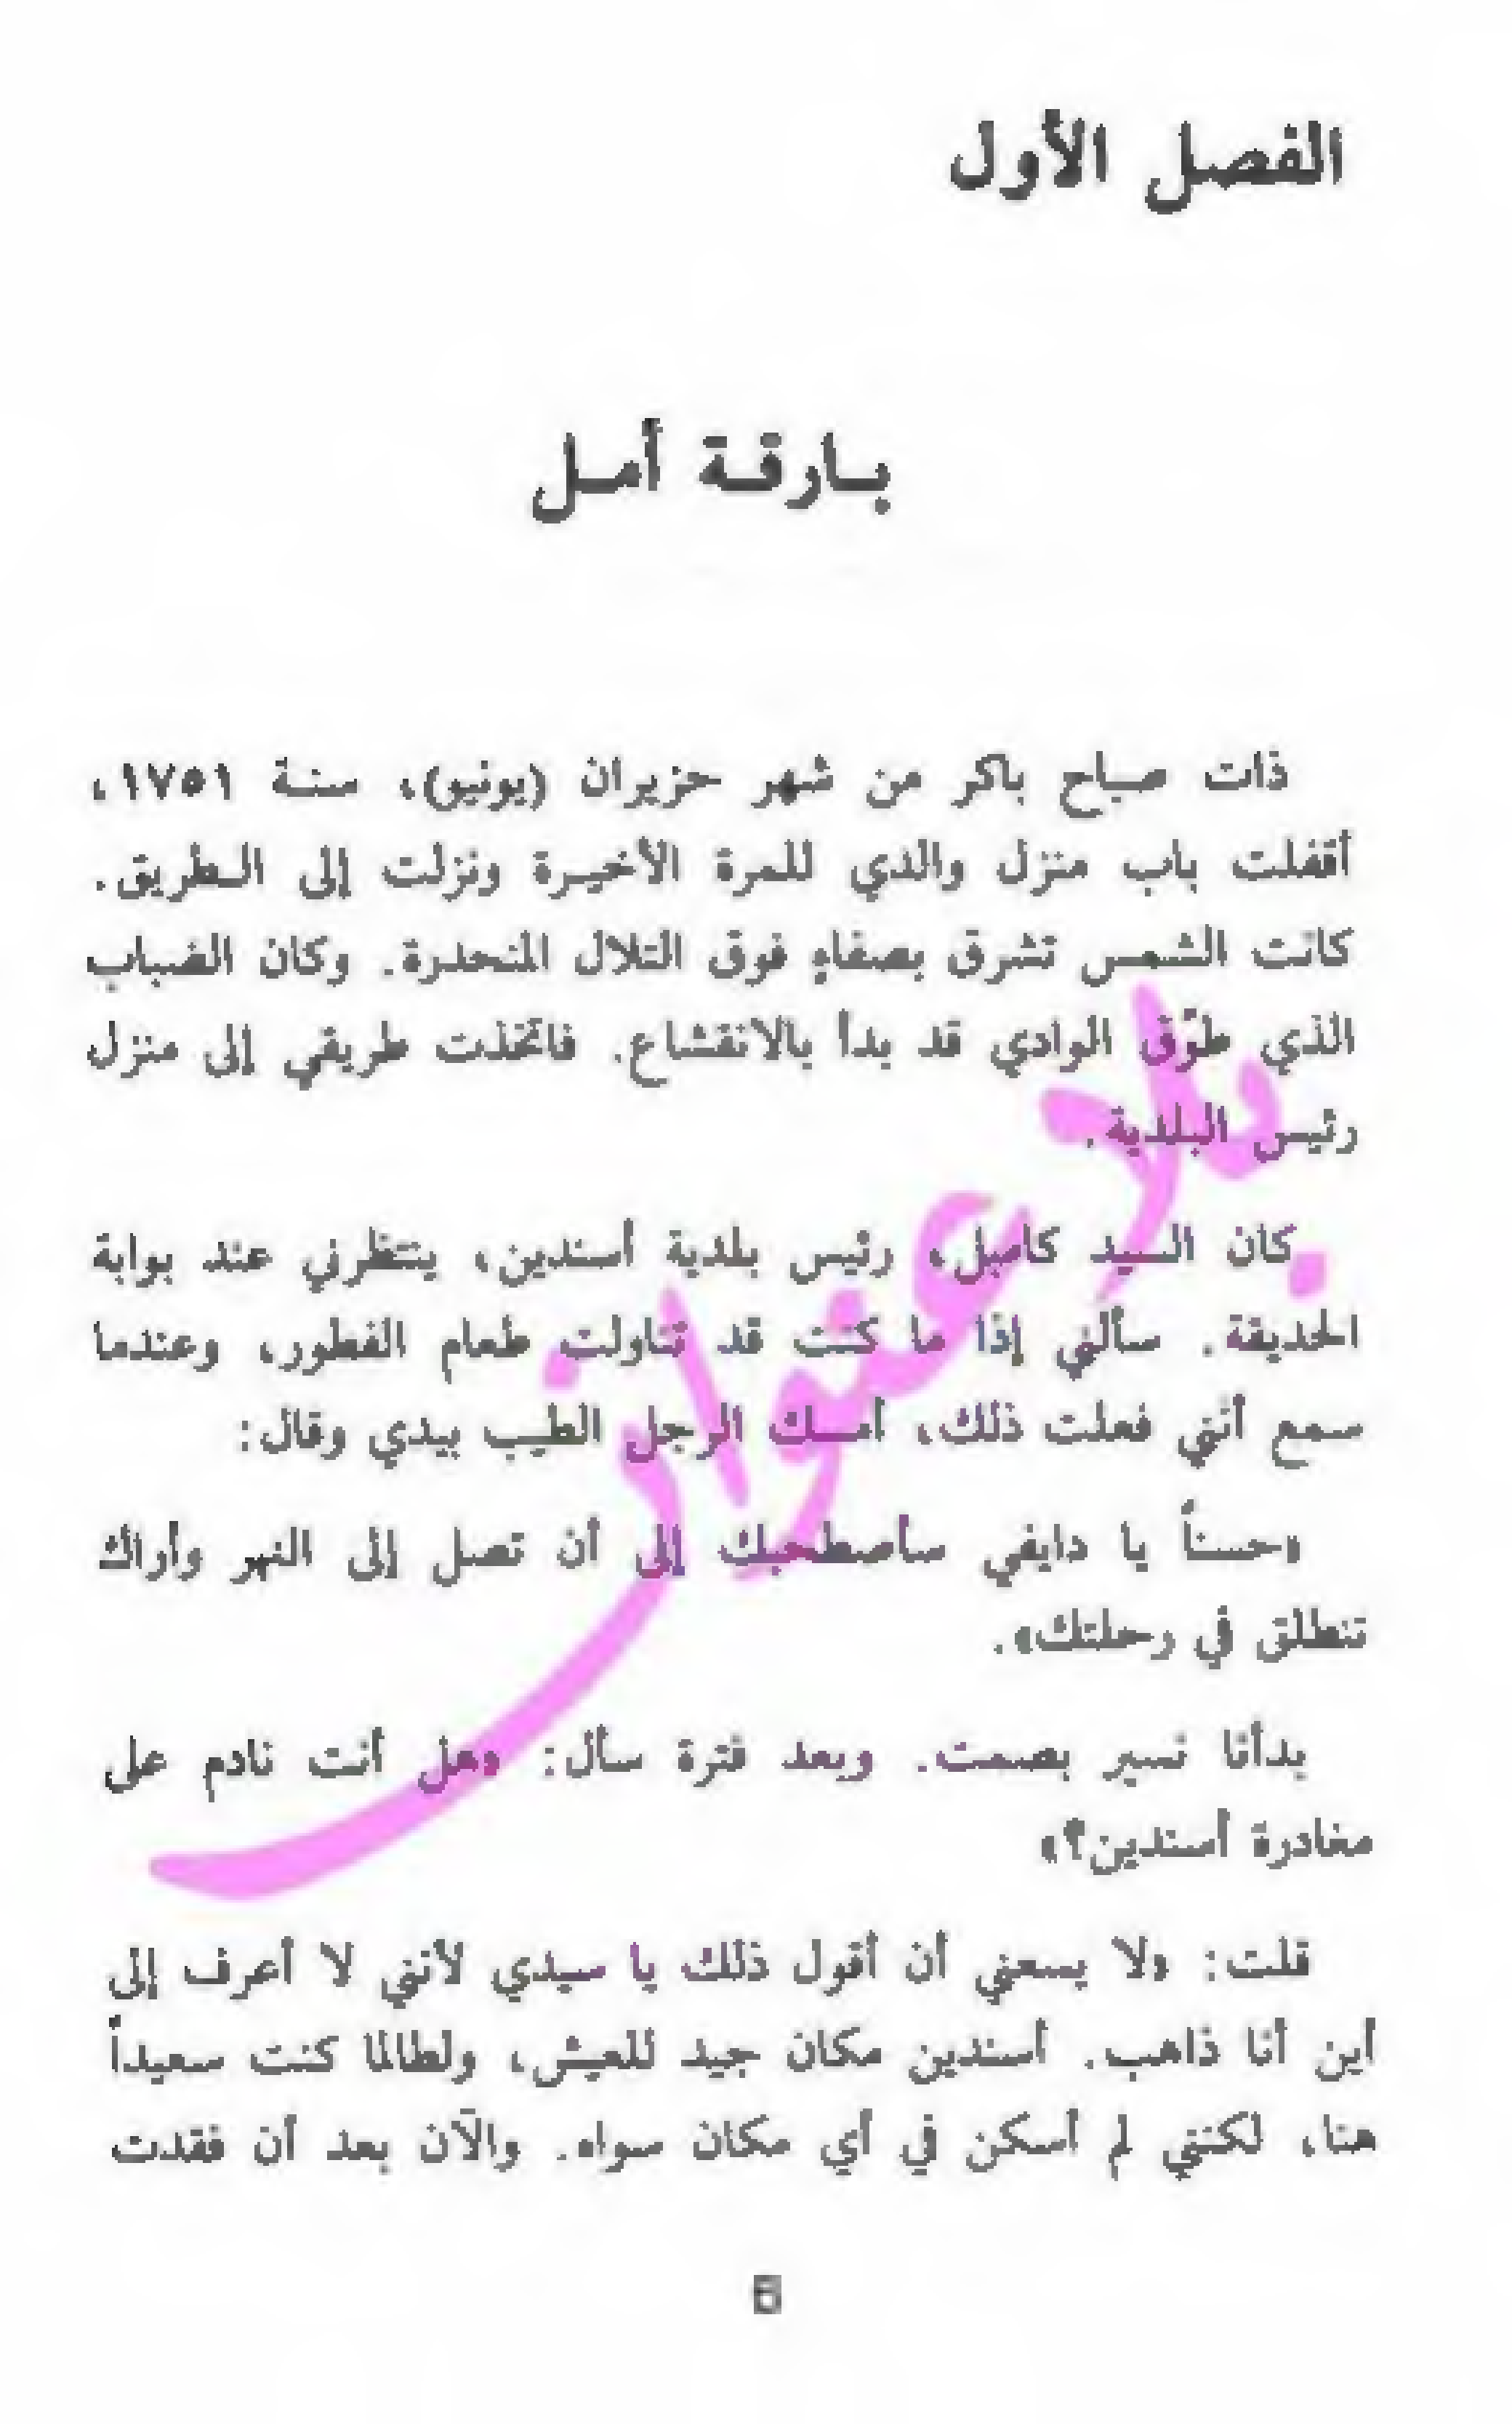 الفصل الأول
بارقة أمل
ذات صباح باكر من شهر حزيران (يونيو)، سنة ١٧٥١،
أقفلت باب منزل والدي للمرة الأخيرة ونزلت إلى الطريق.
كانت الشمس تشرق بصفاءٍ فوق التلال المنحدرة. وكان الضباب
الذي طوّق الوادي قد بدأ بالانقشاع. فاتخذت طريقي إلى منزل
رئيس البلدية.
كان السيد كامبل، رئيس بلدية أسندين، ينتظرني عند بوابة
الحديقة. سألني إذا ما كنت قد تناولت طعام الفطور، وعندما
سمع أنني فعلت ذلك، أمسك الرجل الطيب بيدي وقال:
«حسناً يا دايفي سأصطحبك إلى أن تصل إلى النهر وأراك
تنطلق في رحلتك».
بدأنا نسير بصمت. وبعد فترة سأل: «هل أنت نادم على
مغادرة أسندين؟»
قلت: «لا يسعني أن أقول ذلك يا سيدي لأنني لا أعرف إلى
أين أنا ذاهب. أسندين مكان جيد للعيش، ولطالما كنت سعيداً
هنا، لكنني لم أسكن في أي مكان سواه. والآن بعد أن فقدت
بلا عنوان
6